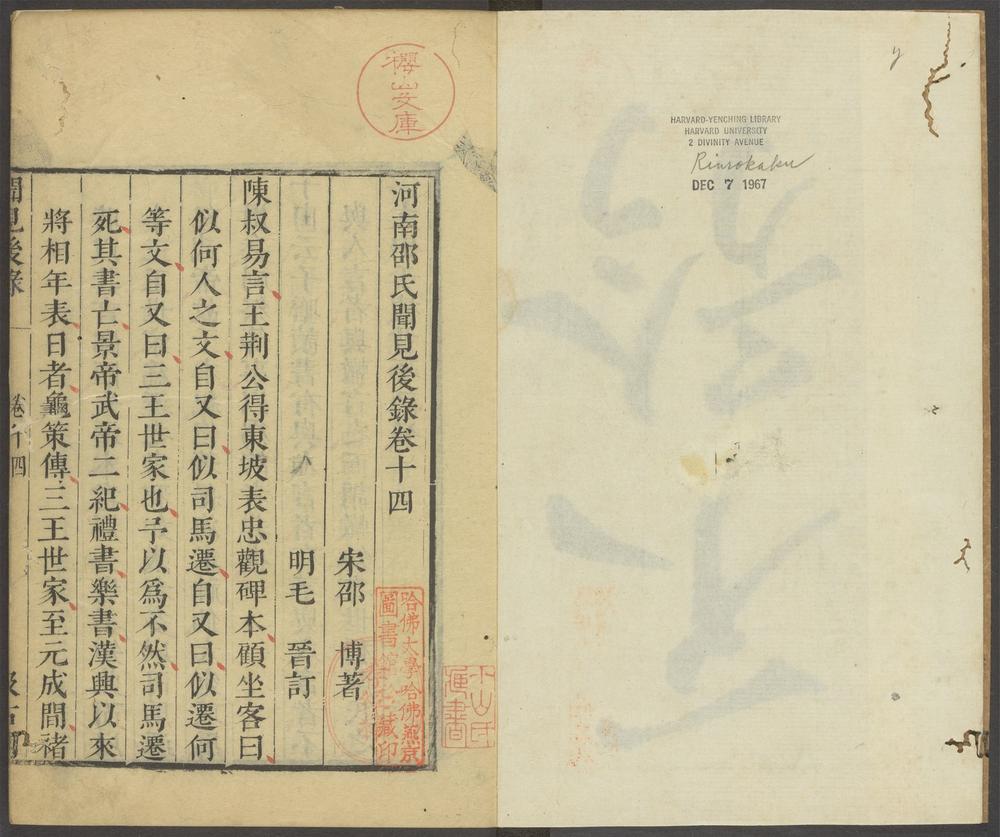 河南邵氏聞見後錄卷十四
宋邵　博著
明毛　晉訂
陳叔易言王荆公得東坡表忠觀碑本顧坐客曰
似何人之文自又曰似司馬遷自又曰似遷何
等文自又曰三王世家也予以爲不然司馬遷
死其書亡景帝武帝二紀禮書樂書漢興以來
將相年表日者龜策傳三王世家至元成間褚
聞見後錄
卷十四
櫻山文庫
哈佛大學哈佛燕京
圖書館珍藏印
HARVARD-YENCHING LIBRARY
HARVARD UNIVERSITY
2 DIVINITY AVENUE
Rinrokaku
DEC 7 1967